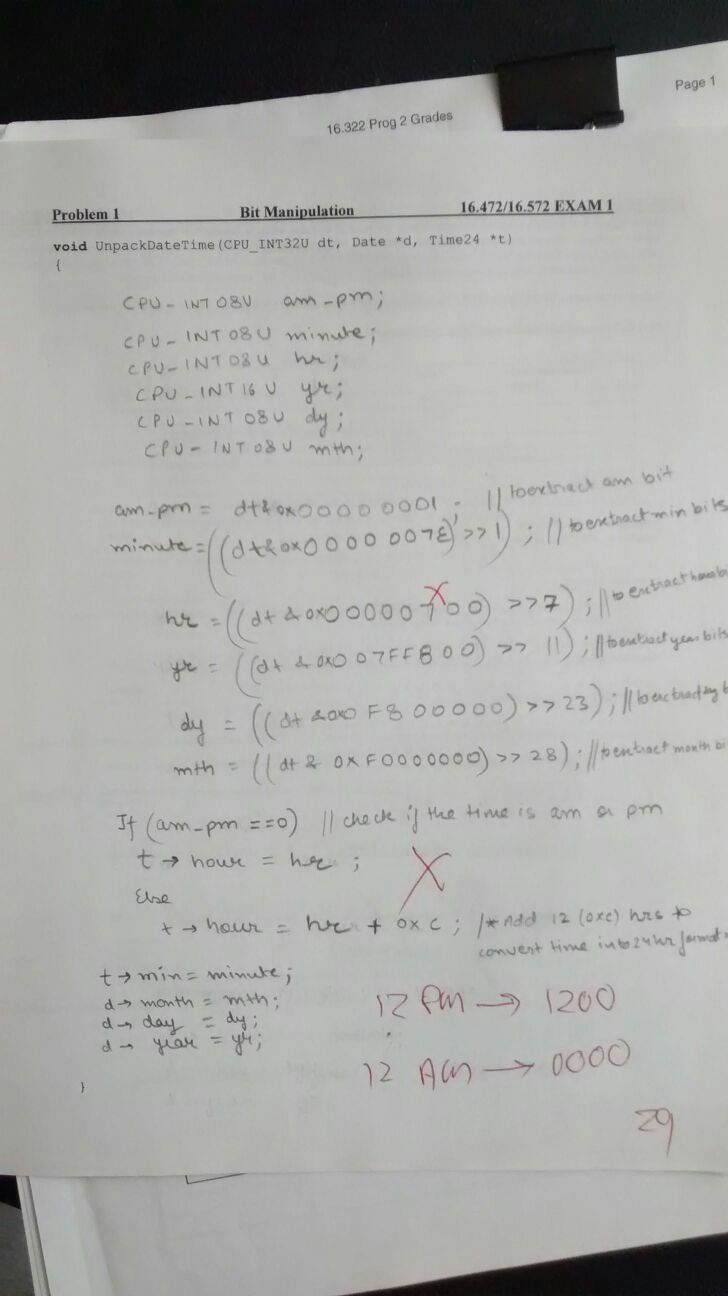 Page 1
16.322 Prog 2 Grades
Problem 1 Bit Manipulation 16.472/16.572 EXAM 1
void UnpackDateTime(CPU_INT32U dt, Date *d, Time24 *t)
{
CPU_INT08U am_pm;
CPU_INT08U minute;
CPU_INT08U hr;
CPU_INT16U yr;
CPU_INT08U dy;
CPU_INT08U mth;
am_pm = dt&0x00000001; // to extract am bit
minute = ((dt&0x0000007E)>>1); // to extract min bits
X
hr = ((dt & 0x00000700) >>7); // to extract hours bi
yr = ((dt & 0x007FF800) >> 11); // to extract year bits
dy = ((dt & 0x0F800000) >> 23); // to extract dy b
mth = ((dt & 0xF0000000) >> 28); // to extract month bi
If (am_pm ==0) // check if the time is am or pm
t → hour = hr ; X
Else
t → hour = hr + 0xC; /* Add 12 (0xC) hrs to
convert time into 24 hr format *
t → min = minute;
d → month = mth;
d → day = dy;
d → year = yr;
12 PM → 1200
12 AM → 0000
}
29